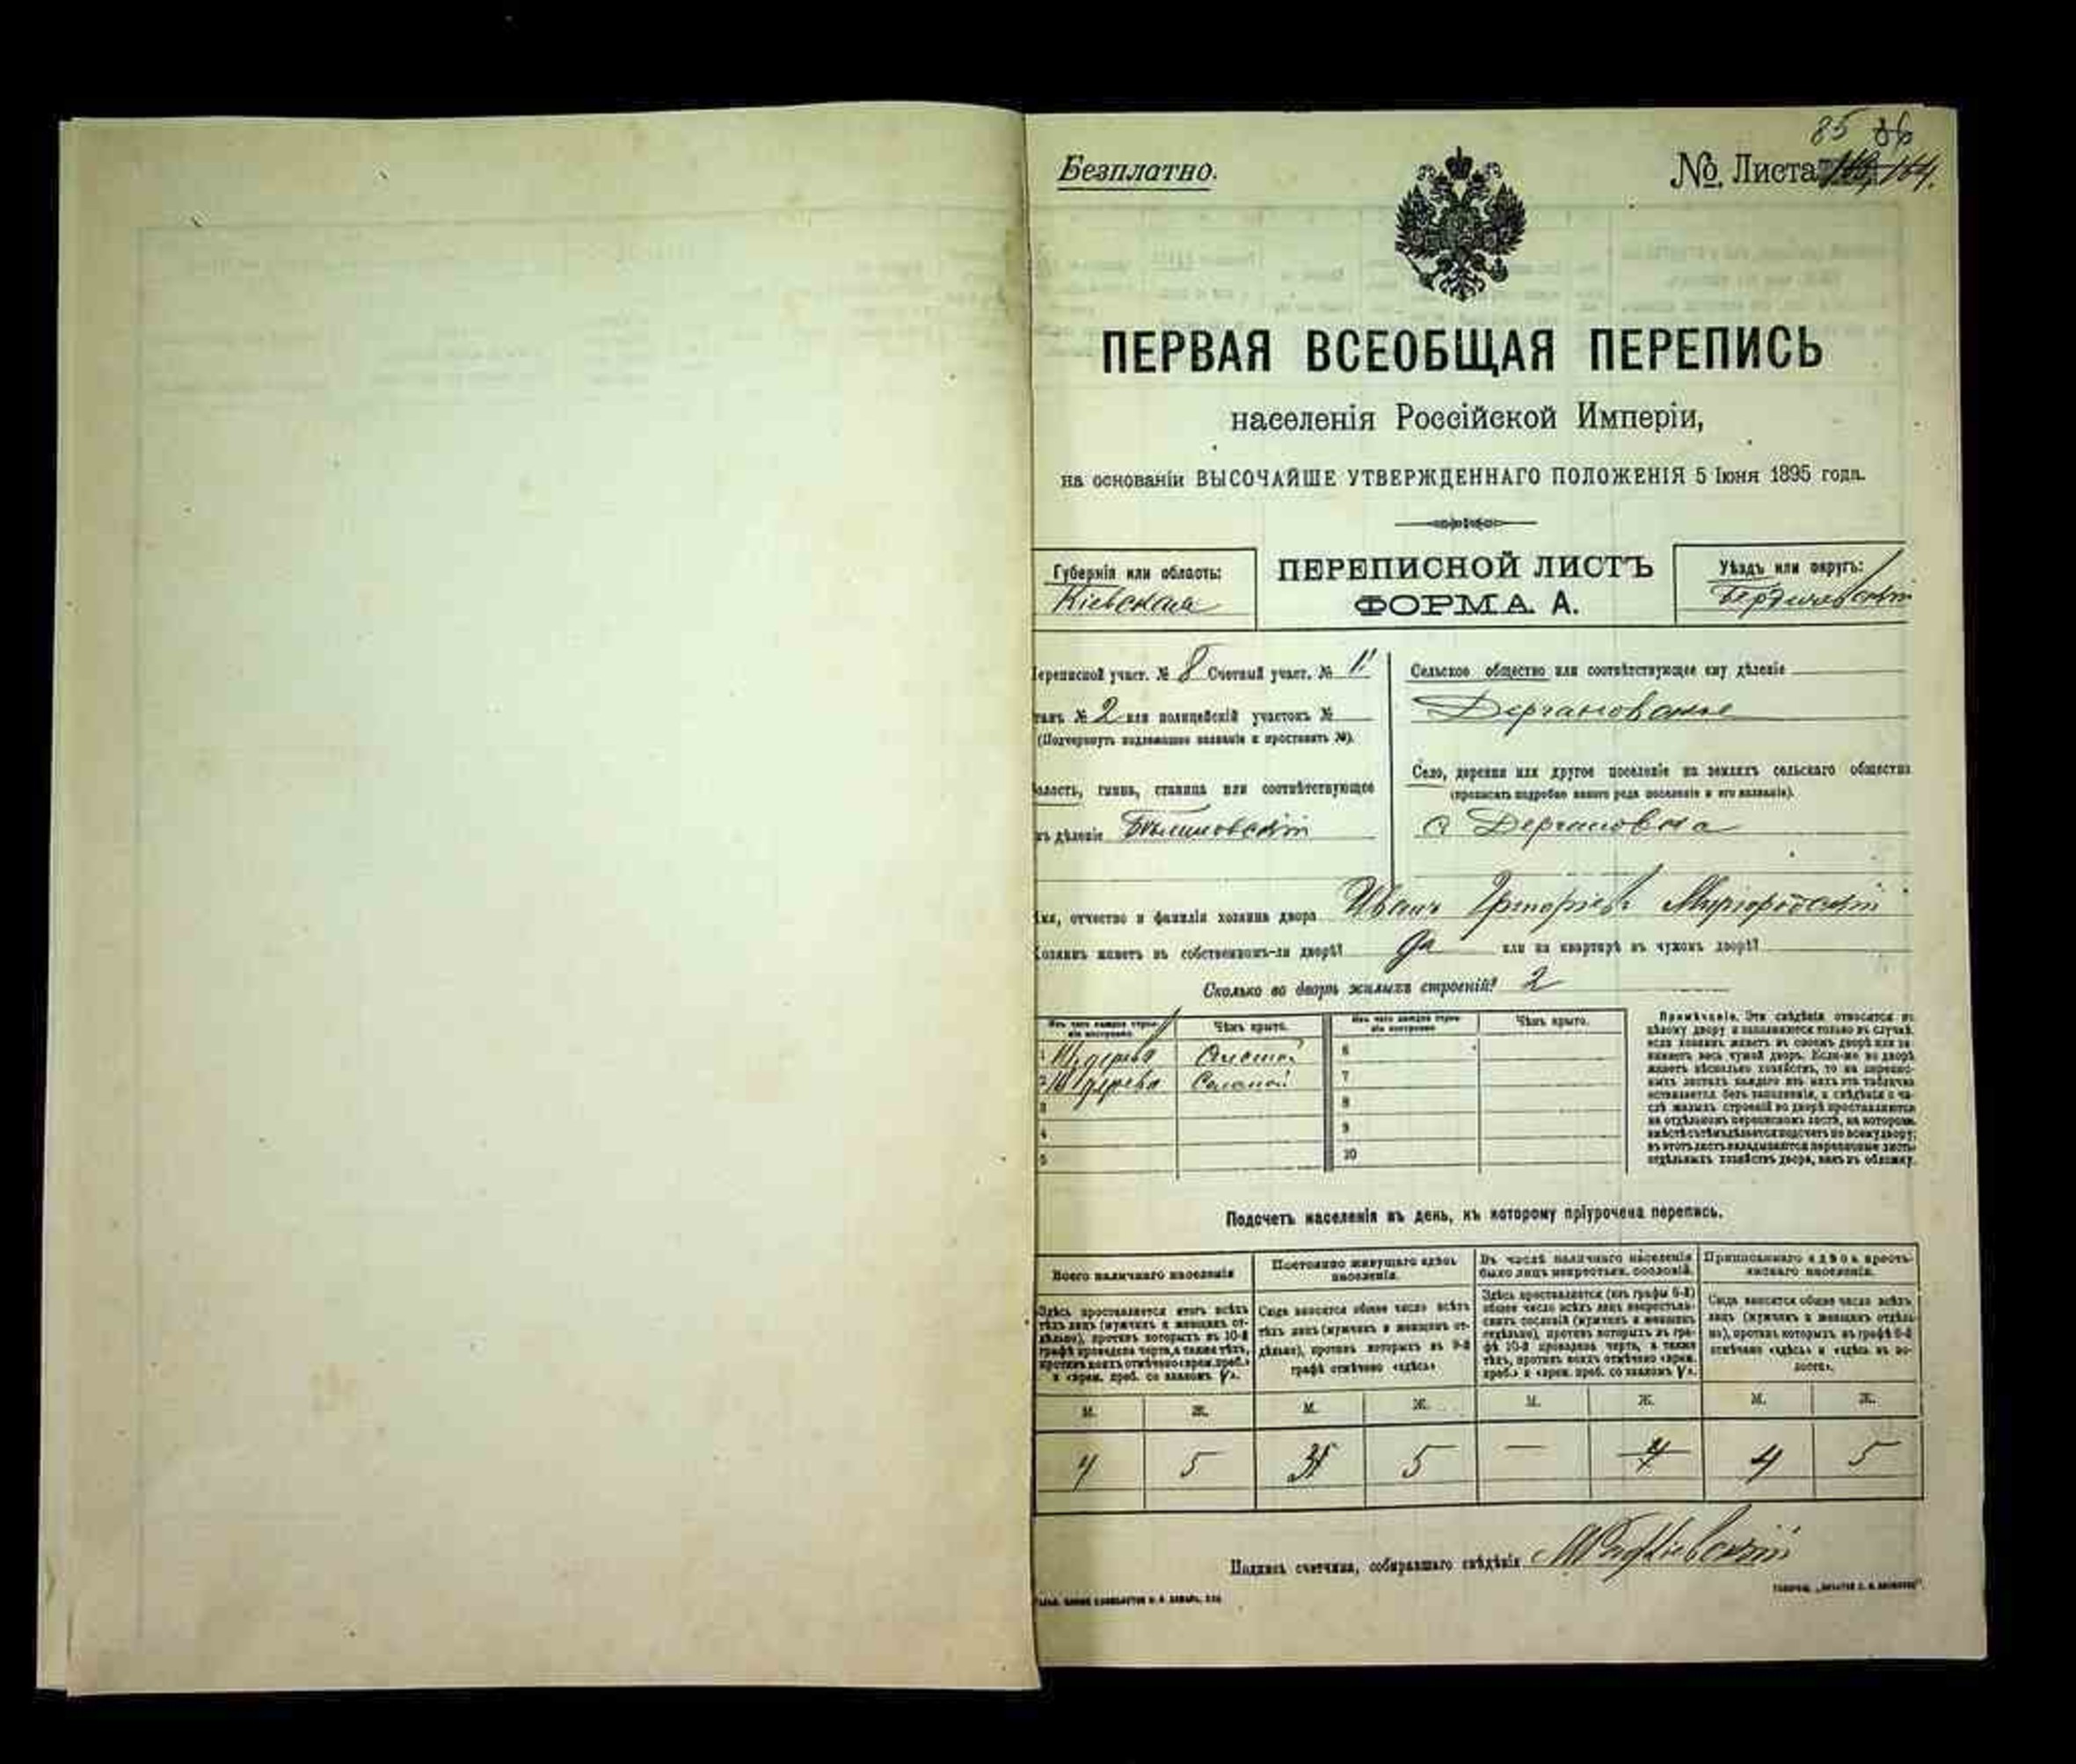 85
Безплатно.
№. Листа 164.
ПЕРВАЯ ВСЕОБЩАЯ ПЕРЕПИСЬ
населенія Россійской Имперіи,
на основаніи ВЫСОЧАЙШЕ УТВЕРЖДЕННАГО ПОЛОЖЕНІЯ 5 Іюня 1895 года.
Губернія или область:
Кіевская
ПЕРЕПИСНОЙ ЛИСТЪ
ФОРМА А.
Уѣздъ или округъ:
Бердичевскій
ереписной участ. № 8 Счетный участ. №
танъ № 2 или полицейскій участокъ №
(Подчеркнуть надлежащее названіе и проставить №).
олость, гмина, станица или соотвѣтствующее
ъ дѣленіе
Сельское общество или соотвѣтствующее ему дѣленіе
Дергановское
Село, деревня или другое поселеніе на земляхъ сельскаго общества
(прописать подробно какого рода поселеніе и его названіе).
с Дергановка
мя, отчество и фамилія хозяина двора Иванъ Григоріевъ Миргородскій
озяинъ живетъ въ собственномъ-ли дворѣ? да или на квартирѣ въ чужомъ дворѣ?
Сколько во дворѣ жилыхъ строеній? 2
Изъ чего каждое строеніе построено. Чѣмъ крыто. Изъ чего каждое строеніе построено. Чѣмъ крыто.
1 Изъ дерева 6
2 Изъ дерева Соломой 7
3 8
4 9
5 10
Примѣчаніе. Эти свѣдѣнія относятся къ
цѣлому двору и заполняются только въ случаѣ,
если хозяинъ живетъ въ своемъ дворѣ или за-
нимаетъ весь чужой дворъ. Если-же во дворѣ
живетъ нѣсколько хозяйствъ, то на перепис-
ныхъ листахъ каждаго изъ нихъ эта табличка
оставляется безъ заполненія, а свѣдѣнія о чи-
слѣ жилыхъ строеній во дворѣ проставляются
на отдѣльномъ переписномъ листѣ, на которомъ
вмѣстѣ съ тѣмъ дѣлается подсчетъ по всему двору;
въ этотъ листъ вкладываются переписные листы
отдѣльныхъ хозяйствъ двора, какъ въ обложку.
Подсчетъ населенія въ день, къ которому пріурочена перепись.
Всего наличнаго населенія
Здѣсь проставляется итогъ всѣхъ
тѣхъ лицъ (мужчинъ и женщинъ от-
дѣльно), противъ которыхъ въ 10-й
графѣ проведена черта, а также тѣхъ,
противъ коихъ отмѣчено «врем. преб.»
и «врем. преб. со знакомъ V».
Постоянно живущаго здѣсь
населенія.
Сюда вносится общее число всѣхъ
тѣхъ лицъ (мужчинъ и женщинъ от-
дѣльно), противъ которыхъ въ 9-й
графѣ отмѣчено «здѣсь»
Въ числѣ наличнаго населенія
было лицъ некрестьян. сословій.
Здѣсь проставляется (изъ графы 6-й)
общее число всѣхъ лицъ некрестьян-
скихъ сословій (мужчинъ и женщинъ
отдѣльно), противъ которыхъ въ гра-
фѣ 10-й проведена черта, а также
тѣхъ, противъ коихъ отмѣчено «врем.
преб.» и «врем. преб. со знакомъ V».
Приписаннаго здѣсь кресть-
янскаго населенія.
Сюда вносится общее число всѣхъ
лицъ (мужчинъ и женщинъ отдѣль-
но), противъ которыхъ въ графѣ 8-й
отмѣчено «здѣсь» и «здѣсь въ во-
лости».
М. Ж. М. Ж. М. Ж. М. Ж.
4 5 5 — 4 4 5
Подпись счетчика, собиравшаго свѣдѣнія